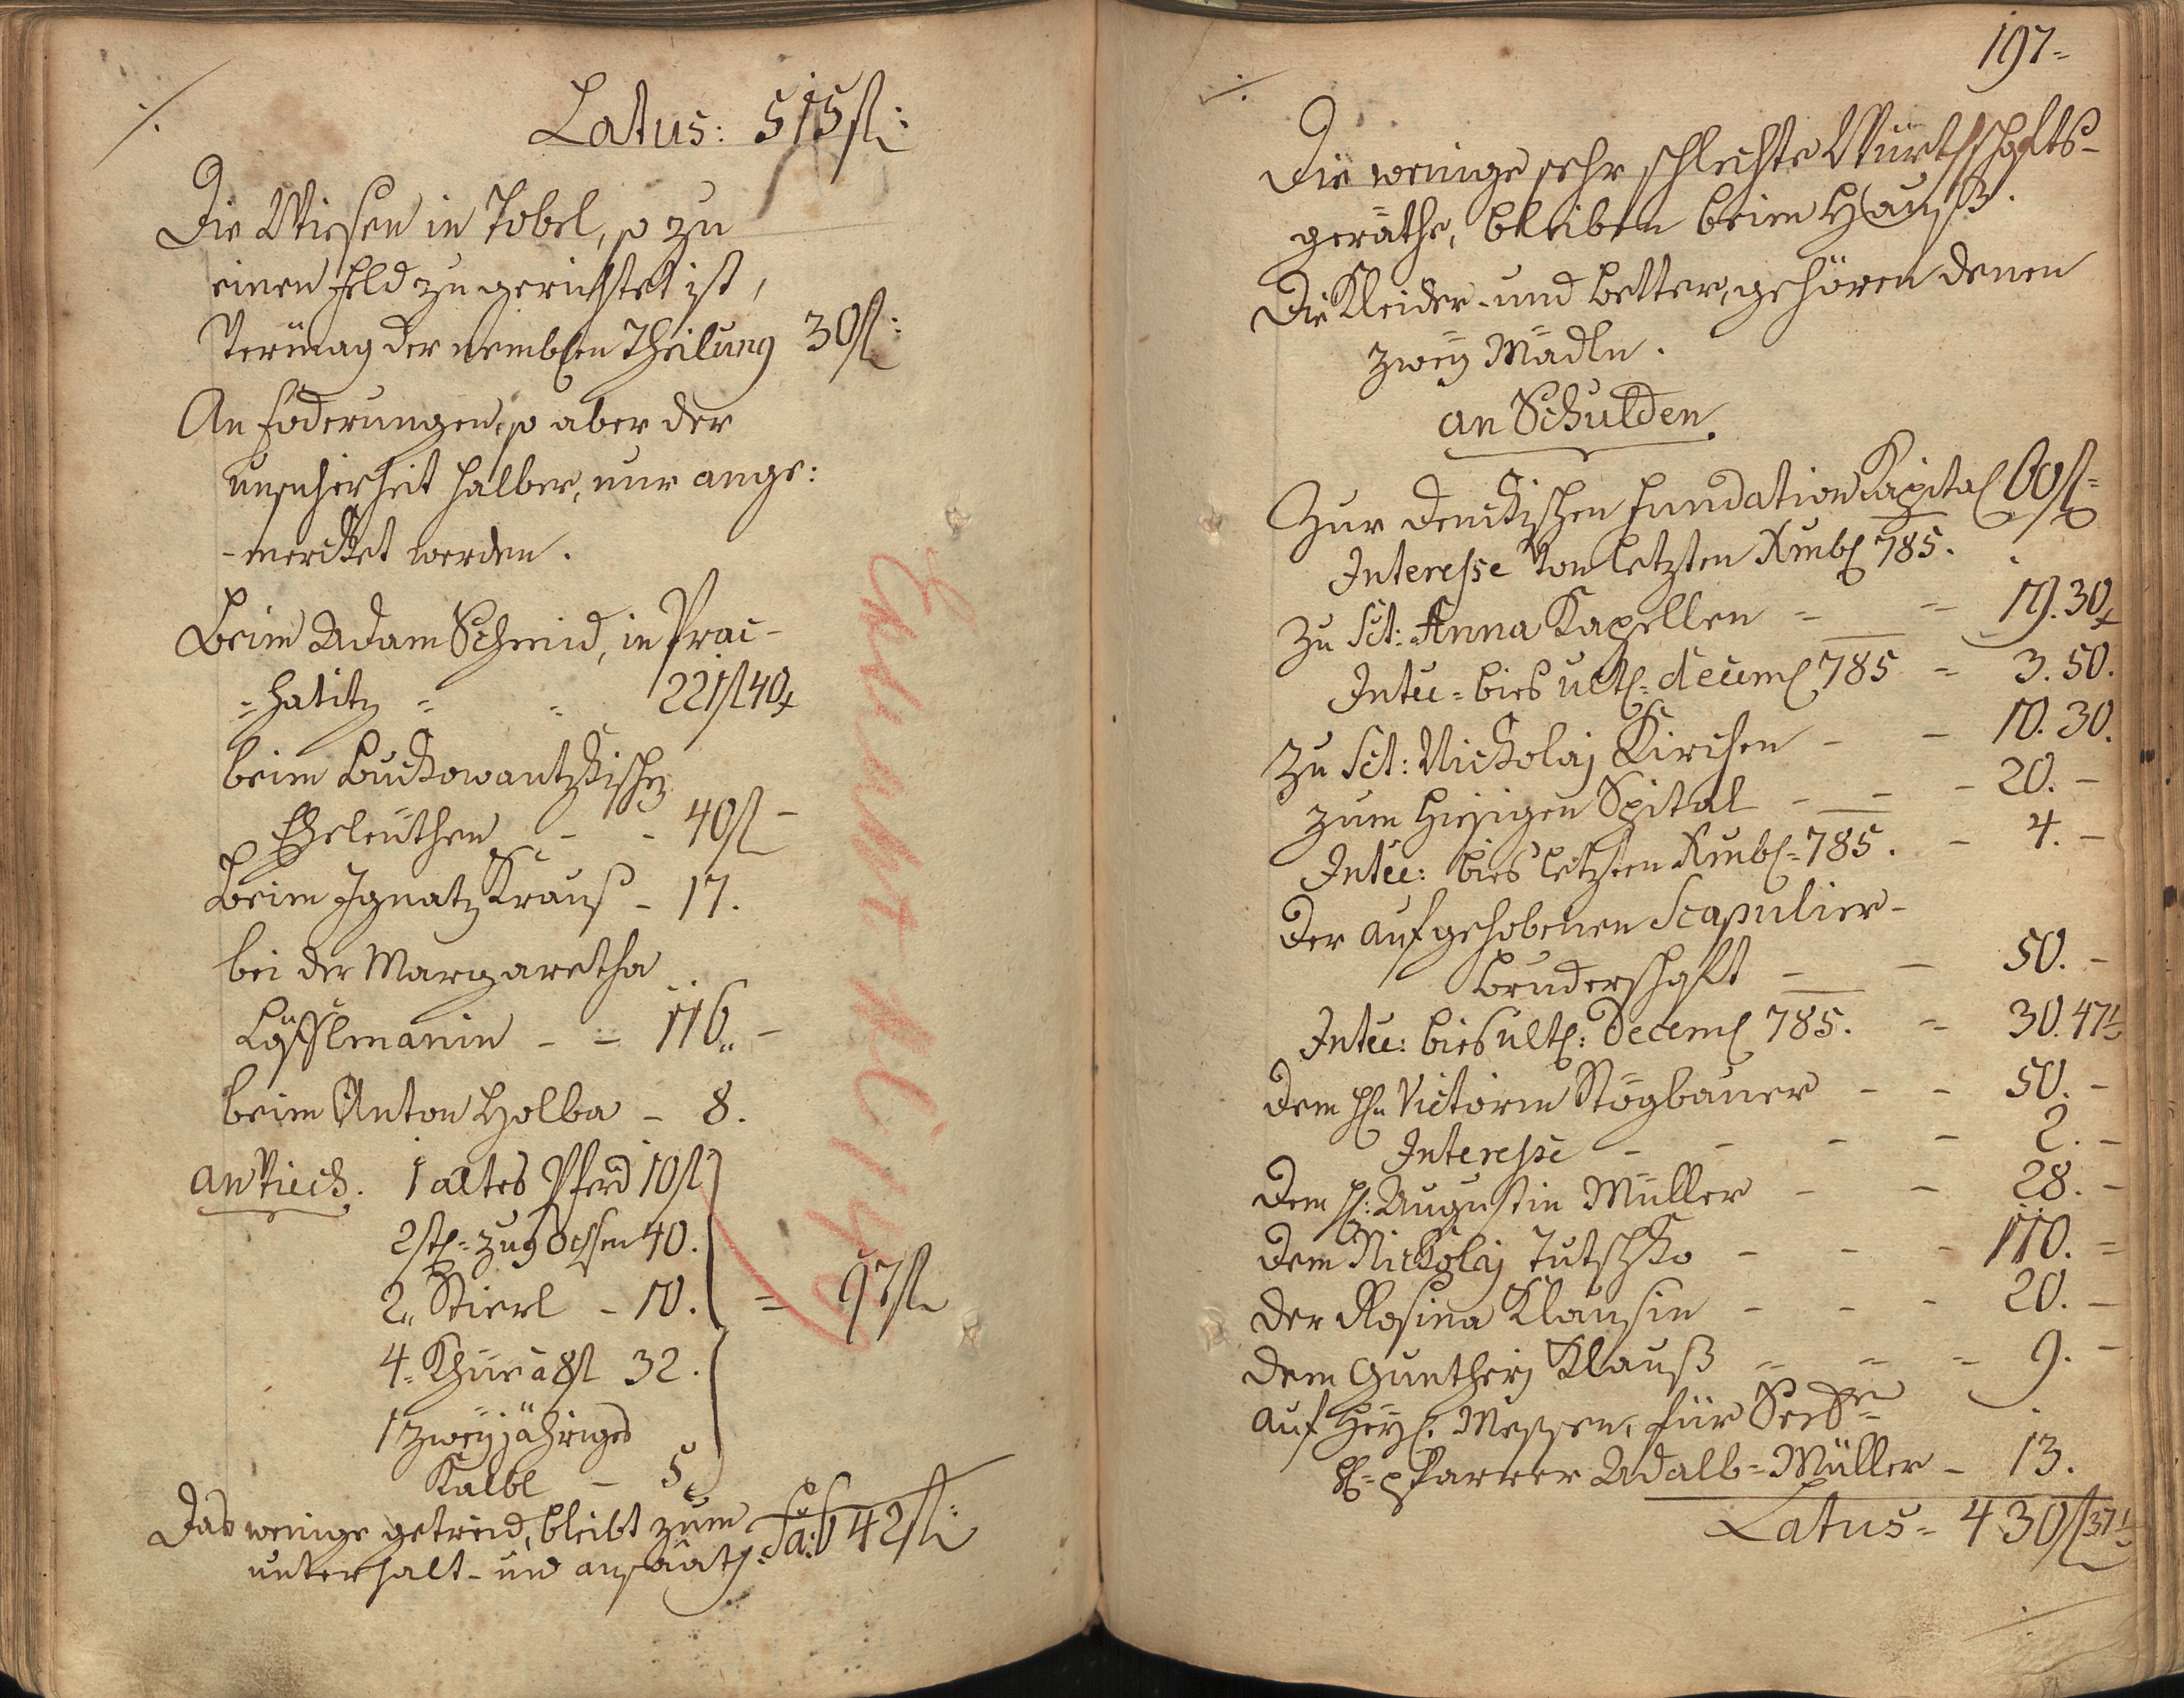 Latus: 515 fl:
Die Wiesen in Tobel, so zu
einen Feld zugerichtet ist,
Vermag der nemblen Theilung 30 fl:
An Foderungen, so aber der
unsicherheit halber, nur ange:
-mercket werden.
Beim Adam Schmid, in Prac-
=hatitz = = 221 fl 40 x
beim Buckowantzkischen
Eheleüthen - - 40 fl -
Beim Ignatz Krauß - 17.
bei der Margaretha
Löfflmanin - = 116. -
beim Anton Holba - 8.
an Viech. 1 altes Pferd 10 fl
2 stl= zug Ochsen 40.
2 Stierl - 10. = 97 fl
4 Khüe à 8 fl 32.
1 zweijähriges
Kalbl - 5
Das wenige getreid, bleibt zum
unterhalt- und ansaat. Sa: 642 fl:
197=
Die wenige sehr schlechte Würthschafts-
geräthe, bleiben beim Hauß.
Die Kleider- und Better, gehören denen
zweÿ Mädln.
an Schulden
Zur Fundation Kapital 60 fl=
Interesse von letzten Xmbl 785.
Zu Sct: Anna Kapellen = = 19. 30 x
Intee= bies ultl= deceml 785 = 3. 50.
Zu Sct: Nickolaj Kirchen - - 10. 30.
zum hiesigen Spital - - - 20. -
Intee: bies letzten Xmbl= 785. - 4. -
Der aufgehobenen Scapulier-
Bruderschaft - - 50. -
Intee: bies ultl: Deceml 785. = 30. 47 1/2
Dem Hl: Victorin Stögbauer - - 50. -
Interesse - - - - 2. -
Dem Hl: Augustin Müller - - 28. -
Dem Nickolaj Tutschko - - - 110. =
Der Rosina Klausin - - - 20. -
Dem Guntherj Klauß = = = 9. -
auf Heyl. Messen, für
Hl= Pfarrer Adalb= Müller - 13.
Latus= 430 fl 37 1/2